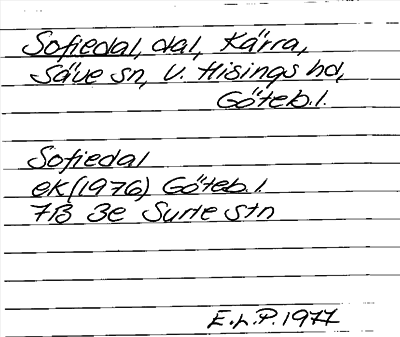 Sofiedal, dal, Kärra,
Säve sn, V. Hisings hd,
Göteb.l.
Sofiedal
ek (1976) Göteb.l.
7B 3e Surte stn
E.L.P. 1977